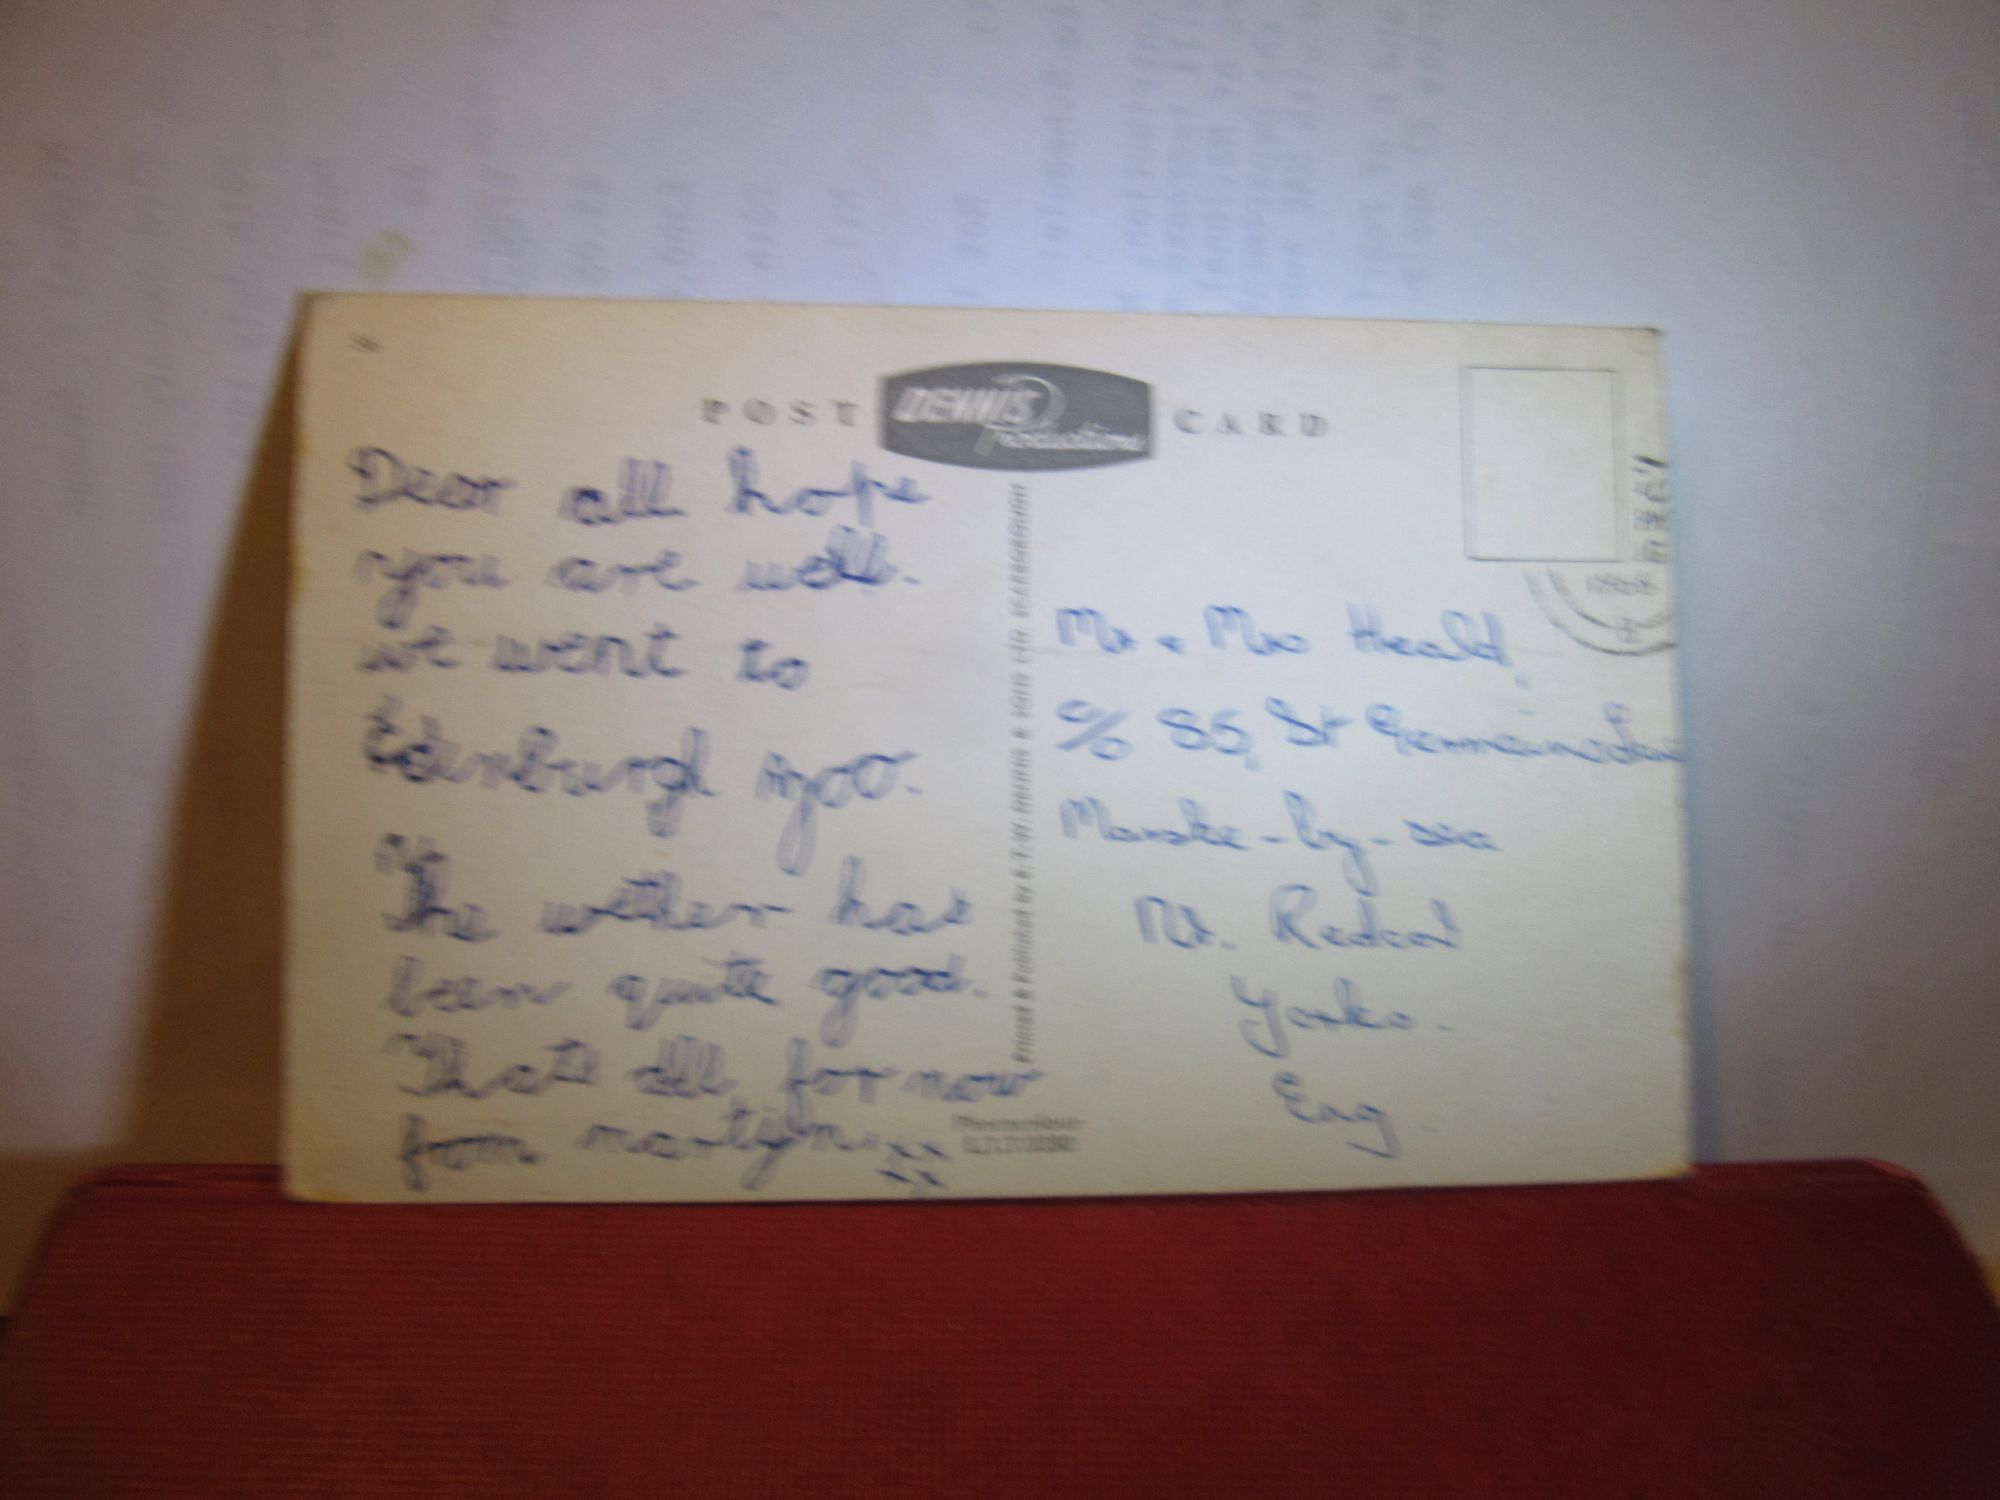 POST CARD
DENNIS
Productions
Dear all hope
you are well.
we went to
Edinburgh zoo.
The wether has
been quite good.
Thats all for now
from martyn xx
xx
Mr & Mrs Heald,
c/o 85, St Germains
Marske-by-sea
Nr. Redcar
Yorks.
Eng.
Printed & Published by E.T.W. DENNIS & SONS LTD. SCARBOROUGH